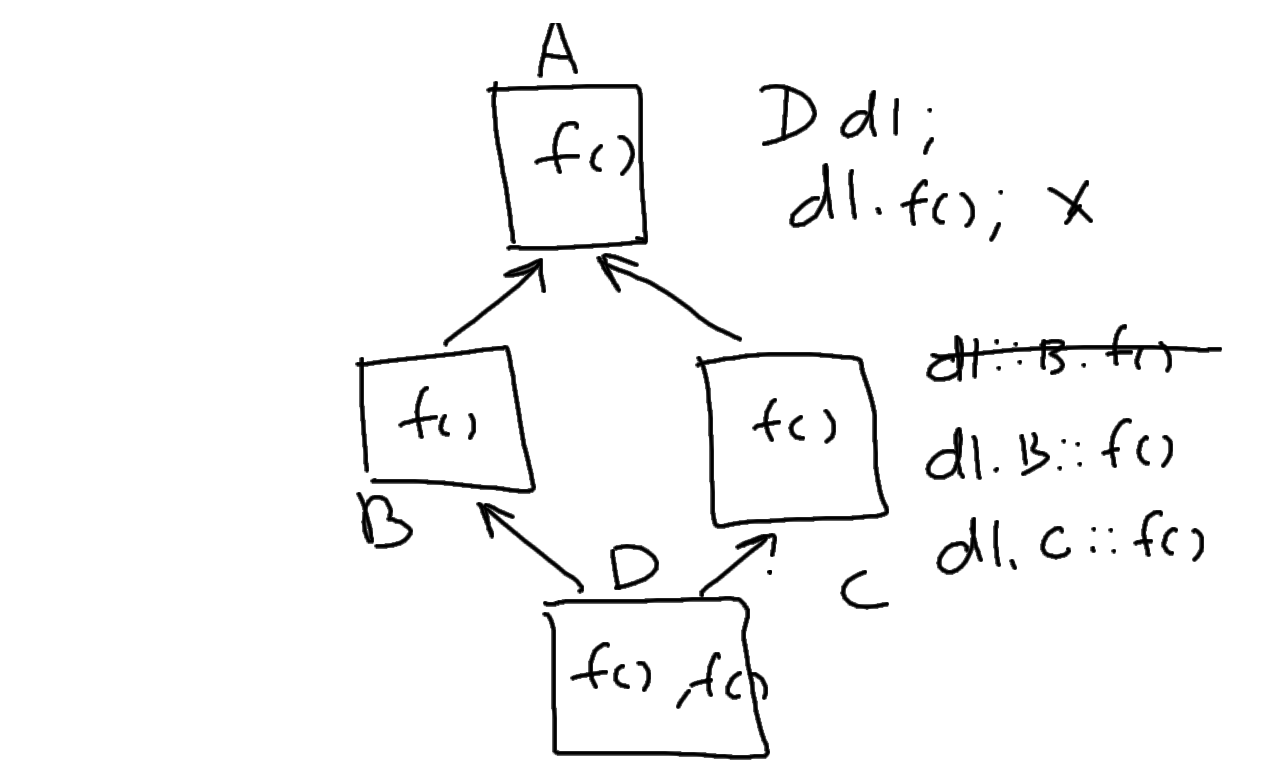 A
f()
D d1;
d1.f(); X
f()
B
f()
C
d1::B.f()
d1.B::f()
d1.C::f()
D
f() ,f()